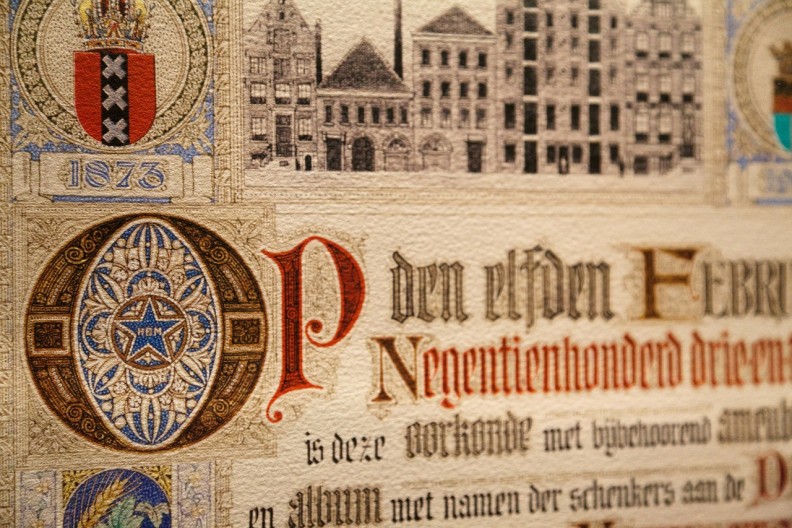 1873
HBM
OP den elfden FEBRU
Negentienhonderd drie-en-
is deze oorkonde met bijbehoorend ameub
en album met namen der schenkers aan de D